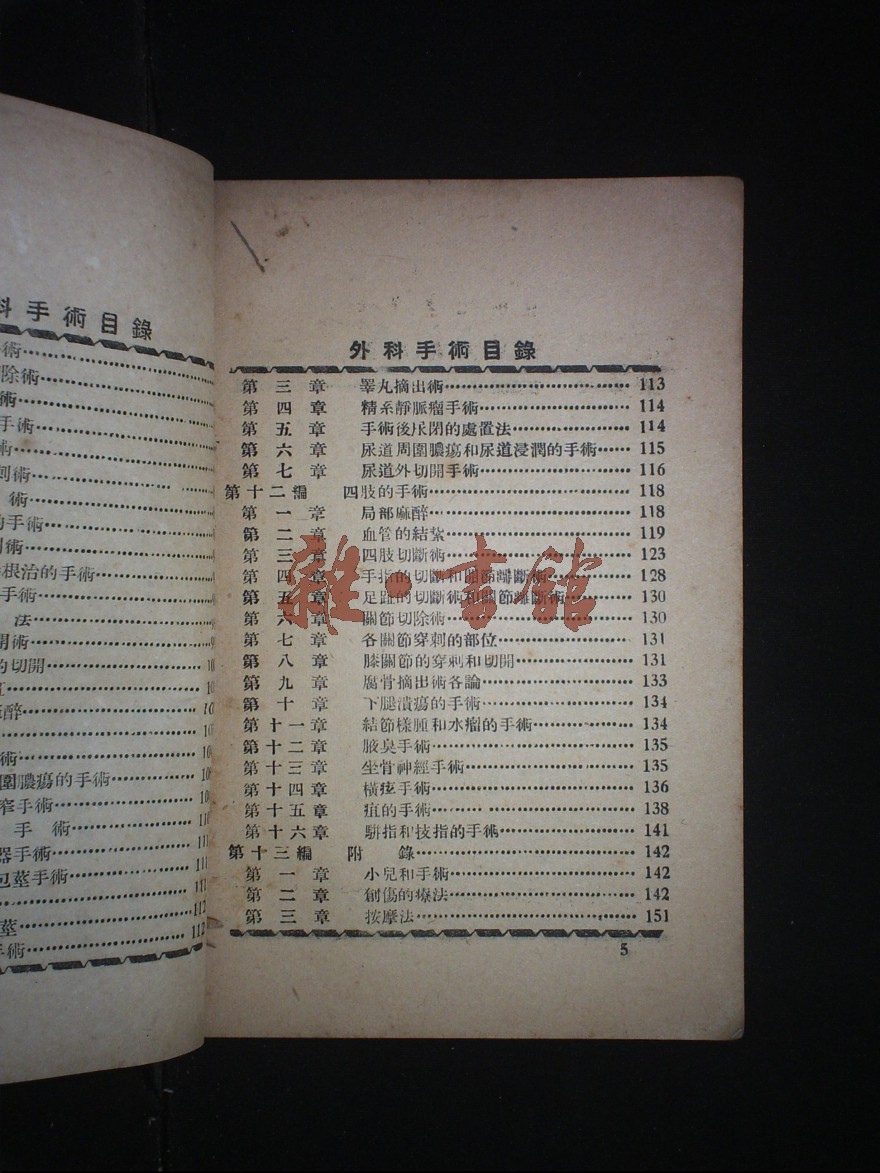 科手術目錄
術
除術
術
手術
術
刺術
術
的手術
術
根治的手術
手術
法
開術
的切開 10
10
醉 10
10
術 10
圍膿瘍的手術 10
窄手術 10
手術 110
器手術 111
包莖手術 111
111
莖 112
手術 112
外科手術目錄
第三章 睪丸摘出術 113
第四章 精系靜脈瘤手術 114
第五章 手術後尿閉的處置法 114
第六章 尿道周圍膿瘍和尿道浸潤的手術 115
第七章 尿道外切開手術 116
第十二編 四肢的手術 118
第一章 局部麻醉 118
第二章 血管的結紮 119
第三章 四肢切斷術 123
第四章 手指的切斷和關節離斷術 128
第五章 足趾的切斷術和關節離斷術 130
第六章 關節切除術 130
第七章 各關節穿刺的部位 131
第八章 膝關節的穿刺和切開 131
第九章 腐骨摘出術各論 133
第十章 下腿潰瘍的手術 134
第十一章 結節樣腫和水瘤的手術 134
第十二章 腋臭手術 135
第十三章 坐骨神經手術 135
第十四章 橫痃手術 136
第十五章 疽的手術 138
第十六章 駢指和技指的手術 141
第十三編 附錄 142
第一章 小兒和手術 142
第二章 創傷的療法 142
第三章 按摩法 151
5
雜·書館